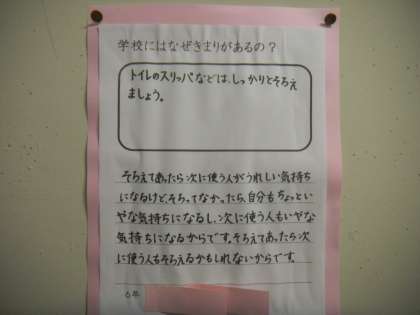 学校にはなぜきまりがあるの？
トイレのスリッパなどは、しっかりとそろえ
ましょう。
そろえてあったら次に使う人がうれしい気持ち
になるけど、そろってなかったら、自分もちょっとい
やな気持ちになるし、次に使う人もいやな
気持ちになるからです。そろえてあったら次
に使う人もそろえるかもしれないからです。
6年